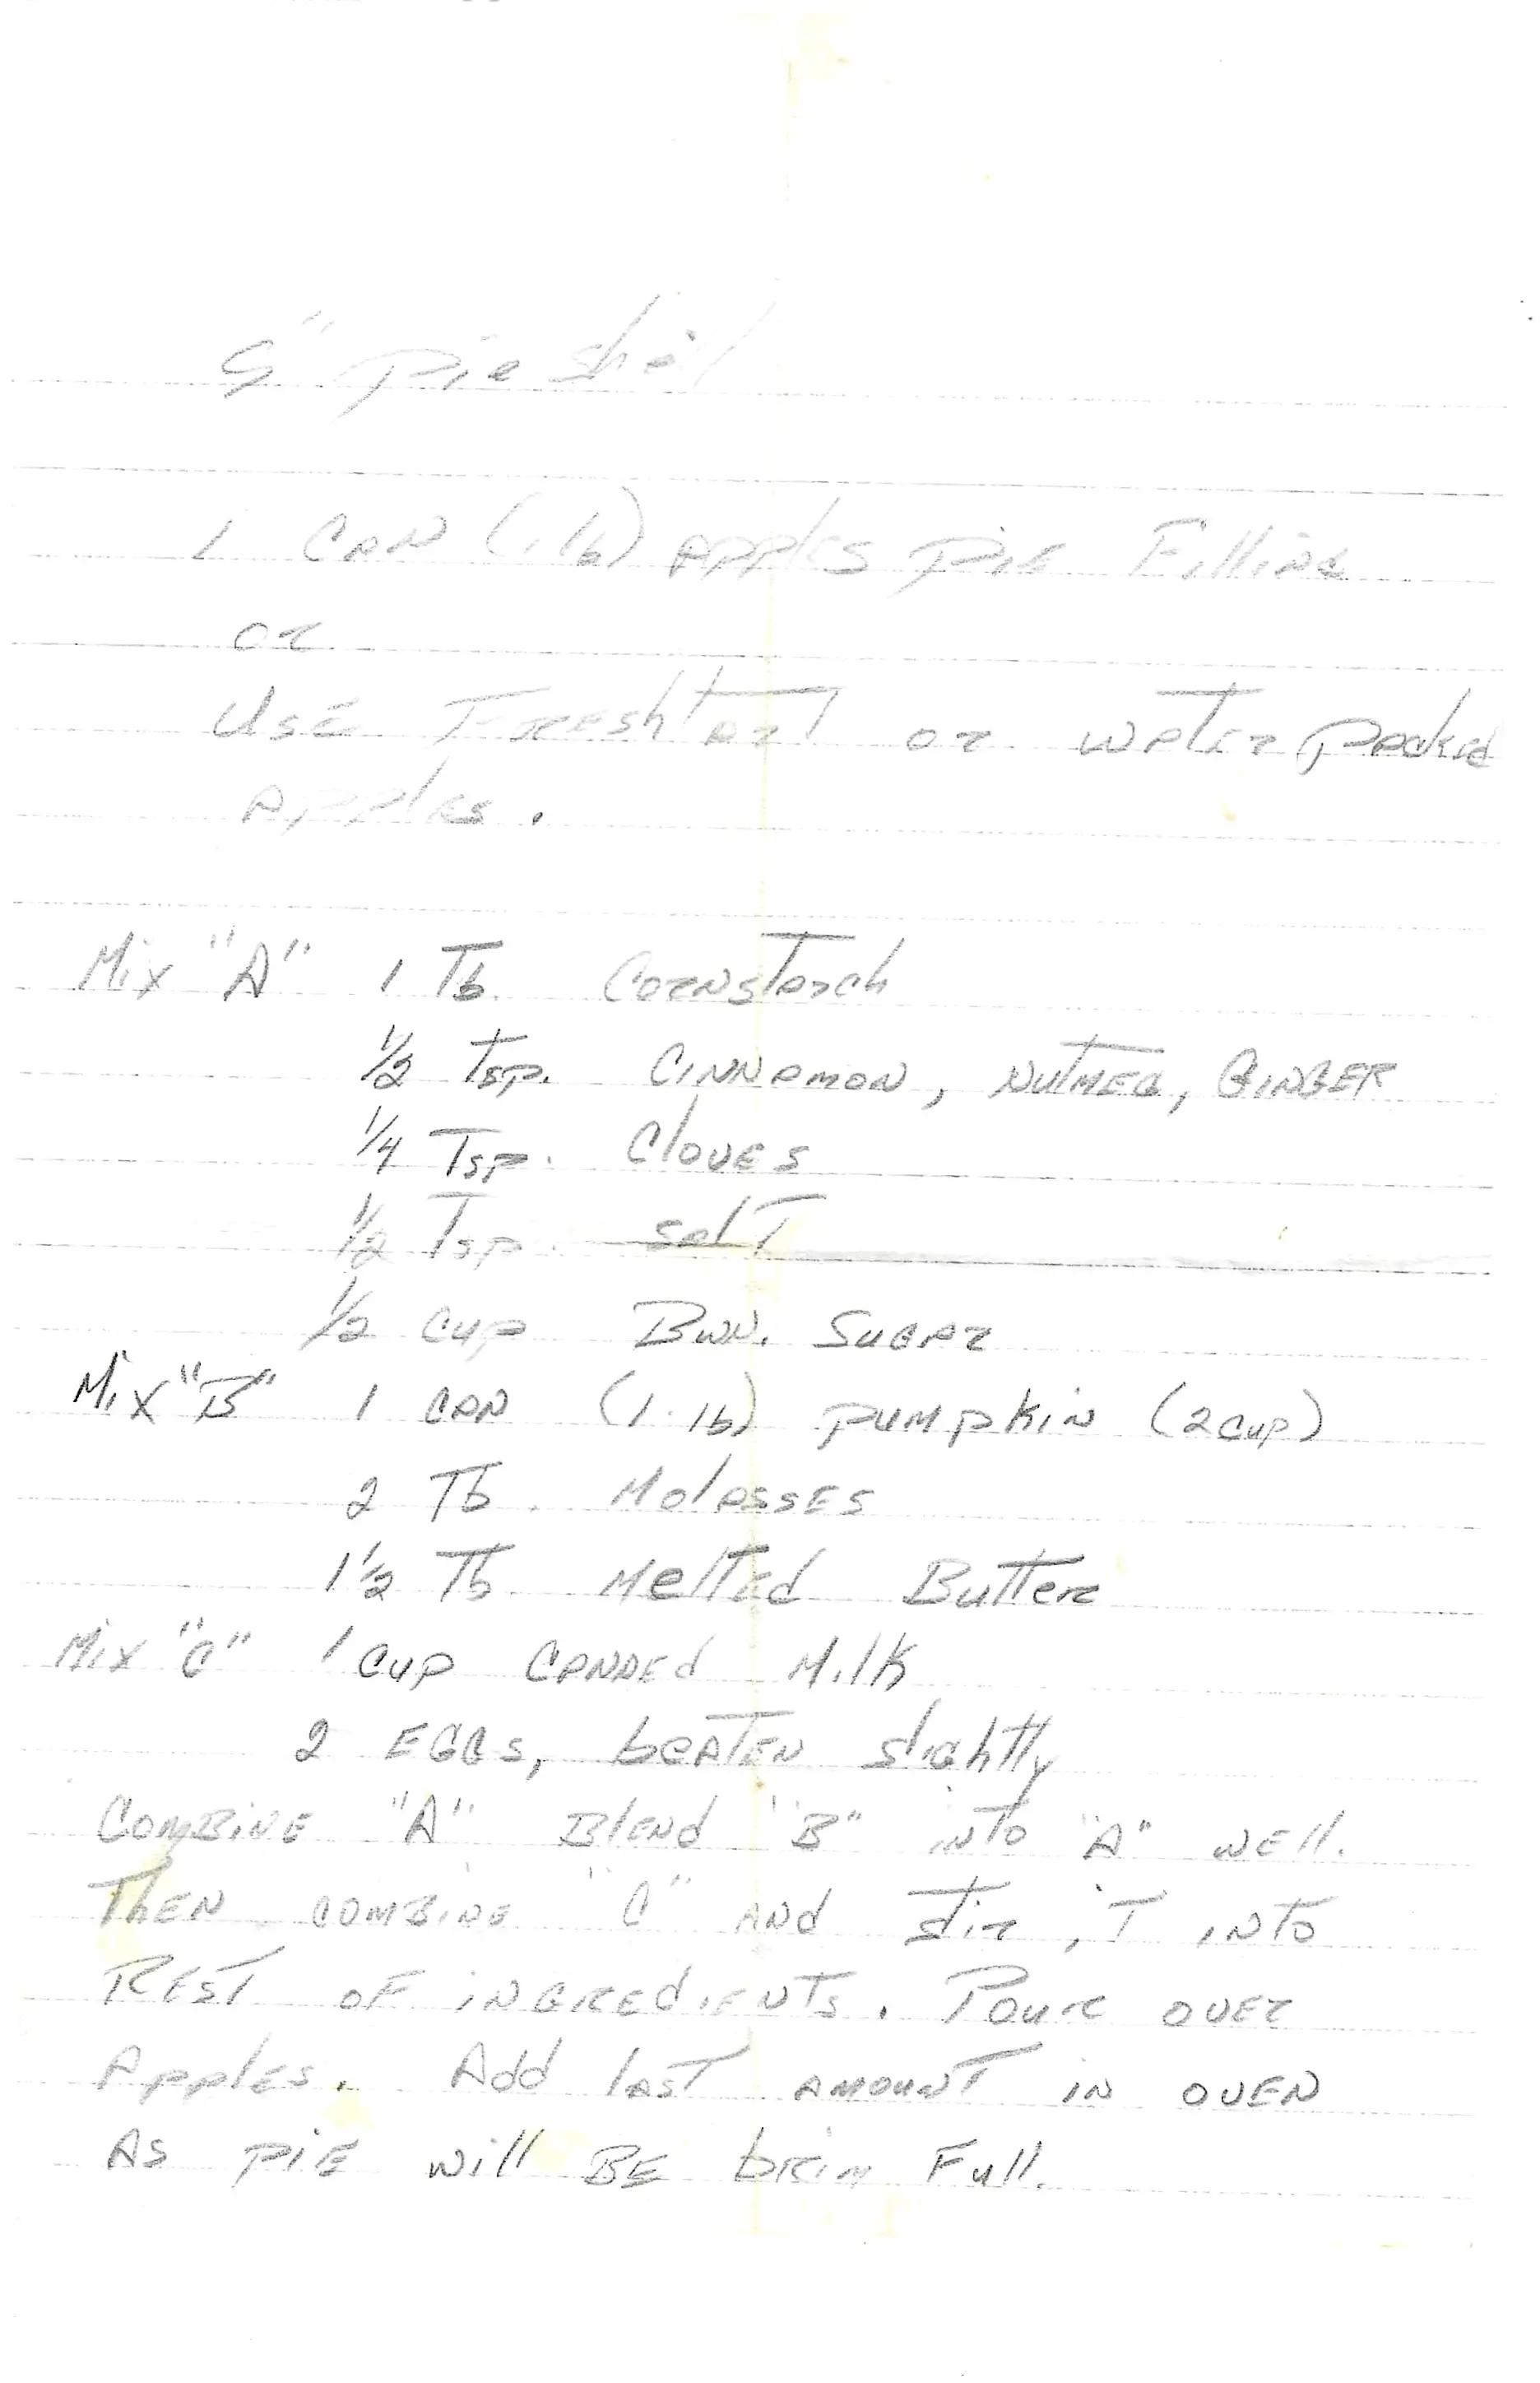 9" Pie Shell
1 CAN (1 lb) APPLES PIE FilliNG
or
USE FRESh TART or WATEr PACkEd
APPlES.
Mix "A" 1 Tb. CornsTarch
1/2 Tsp. CiNNAMON, NuTMEG, GiNGER
1/4 Tsp. CloVES
1/2 Tsp. salT
1/2 cup BwN. SuGAr
Mix "B" 1 CAN (1 lb) PuMPkiN (2 cup)
2 Tb. MolASSES
1 1/2 Tb. MelTEd BuTTer
Mix "C" 1 cup CANNEd Milk
2 EGGs, bEATEN slighTly
COMBiNE "A" BlENd "B" iNTo "A" wEll.
ThEN COMBiNE "C" ANd sTir iT iNTo
REST OF iNGREdiENTs. Pour OVEr
APPlES. Add lAST AMOuNT iN OVEN
AS PiE will BE briM Full.